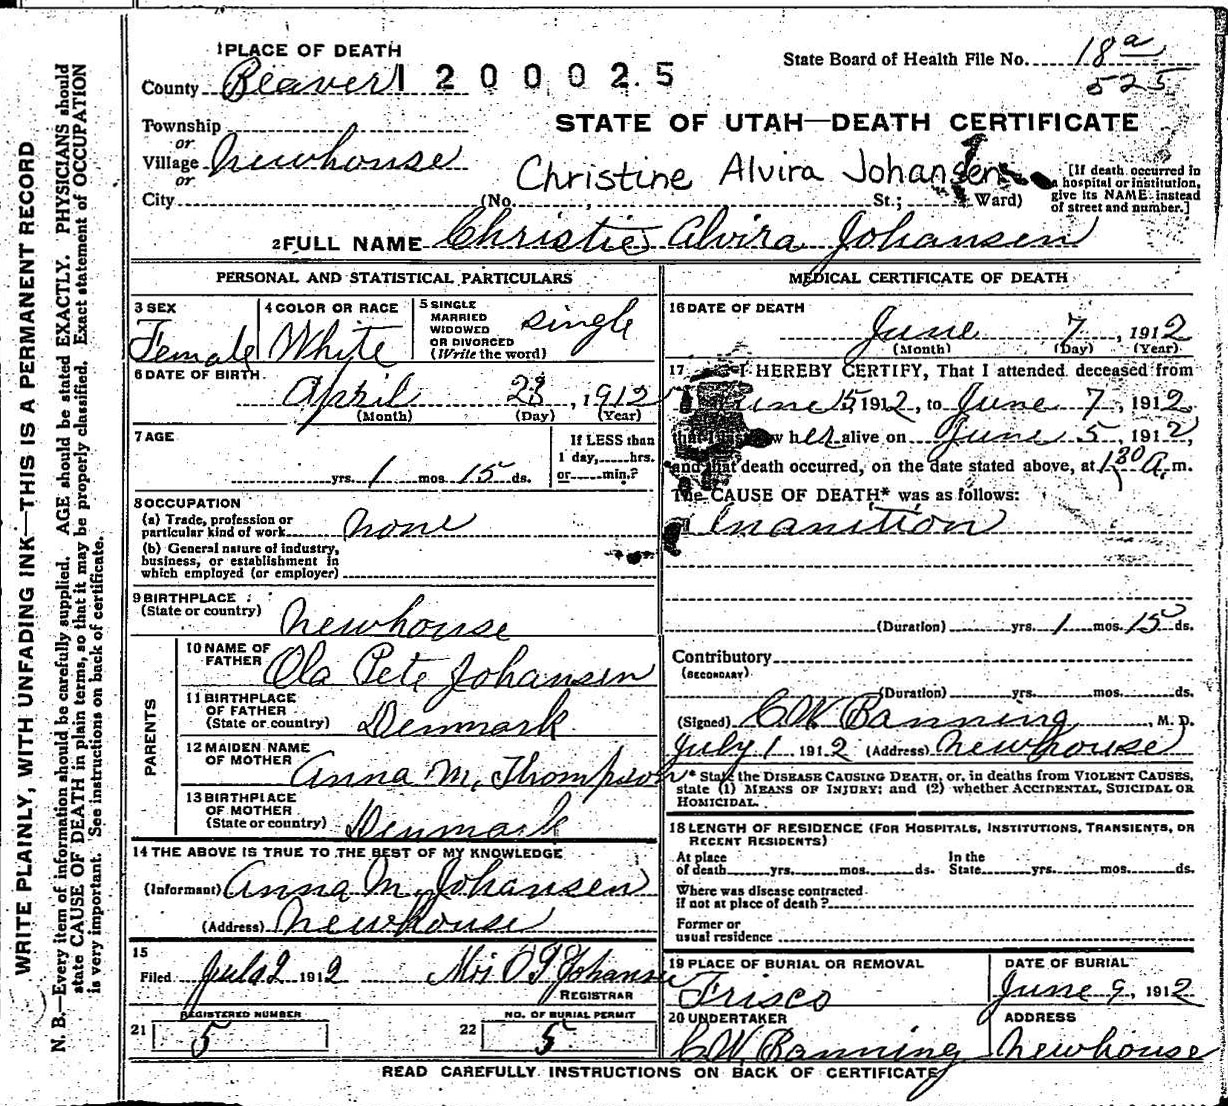 WRITE PLAINLY, WITH UNFADING INK—THIS IS A PERMANENT RECORD
N. B.—Every item of information should be carefully supplied. AGE should be stated EXACTLY. PHYSICIANS should
state CAUSE OF DEATH in plain terms, so that it may be properly classified. Exact statement of OCCUPATION
is very important. See instructions on back of certificate.
1 PLACE OF DEATH
State Board of Health File No. 18 a
525
County Beaver 1 2 0 0 0 2 5
Township
or
Village Newhouse
or
City
STATE OF UTAH—DEATH CERTIFICATE
Christine Alvira Johansen
(No. , St.; Ward)
[If death occurred in
a hospital or institution,
give its NAME instead
of street and number.]
2 FULL NAME Christie Alvira Johansen
PERSONAL AND STATISTICAL PARTICULARS
3 SEX
Female
4 COLOR OR RACE
White
5 SINGLE
MARRIED
WIDOWED
OR DIVORCED
(Write the word)
single
6 DATE OF BIRTH
April 23, 1912
(Month) (Day) (Year)
7 AGE
yrs. 1 mos. 15 ds.
If LESS than
1 day, hrs.
or min.?
8 OCCUPATION
(a) Trade, profession or
particular kind of work none
(b) General nature of industry,
business, or establishment in
which employed (or employer)
9 BIRTHPLACE
(State or country) Newhouse
PARENTS
10 NAME OF
FATHER Ola Pete Johansen
11 BIRTHPLACE
OF FATHER
(State or country) Denmark
12 MAIDEN NAME
OF MOTHER Anna M. Thompson
13 BIRTHPLACE
OF MOTHER
(State or country) Denmark
14 THE ABOVE IS TRUE TO THE BEST OF MY KNOWLEDGE
(Informant) Anna M. Johansen
(Address) Newhouse
15
Filed July 2 1912 Mrs O P Johansen
REGISTRAR
REGISTERED NUMBER
21 5
NO. OF BURIAL PERMIT
22 5
MEDICAL CERTIFICATE OF DEATH
16 DATE OF DEATH
June 7, 1912
(Month) (Day) (Year)
17 I HEREBY CERTIFY, That I attended deceased from
1912, to June 7, 1912
that I last saw her alive on June 5, 1912,
and that death occurred, on the date stated above, at 1 30 A. m.
The CAUSE OF DEATH* was as follows:
Inanition
(Duration) yrs. 1 mos. 15 ds.
Contributory
(SECONDARY)
(Duration) yrs. mos. ds.
(Signed) C W Banning, M. D.
July 1 1912 (Address) Newhouse
* State the DISEASE CAUSING DEATH, or, in deaths from VIOLENT CAUSES,
state (1) MEANS OF INJURY; and (2) whether ACCIDENTAL, SUICIDAL OR
HOMICIDAL.
18 LENGTH OF RESIDENCE (FOR HOSPITALS, INSTITUTIONS, TRANSIENTS, OR
RECENT RESIDENTS)
At place
of death yrs. mos. ds.
In the
State yrs. mos. ds.
Where was disease contracted
if not at place of death?
Former or
usual residence
19 PLACE OF BURIAL OR REMOVAL
Frisco
DATE OF BURIAL
June 9, 1912
20 UNDERTAKER
C W. Banning
ADDRESS
Newhouse
READ CAREFULLY INSTRUCTIONS ON BACK OF CERTIFICATE